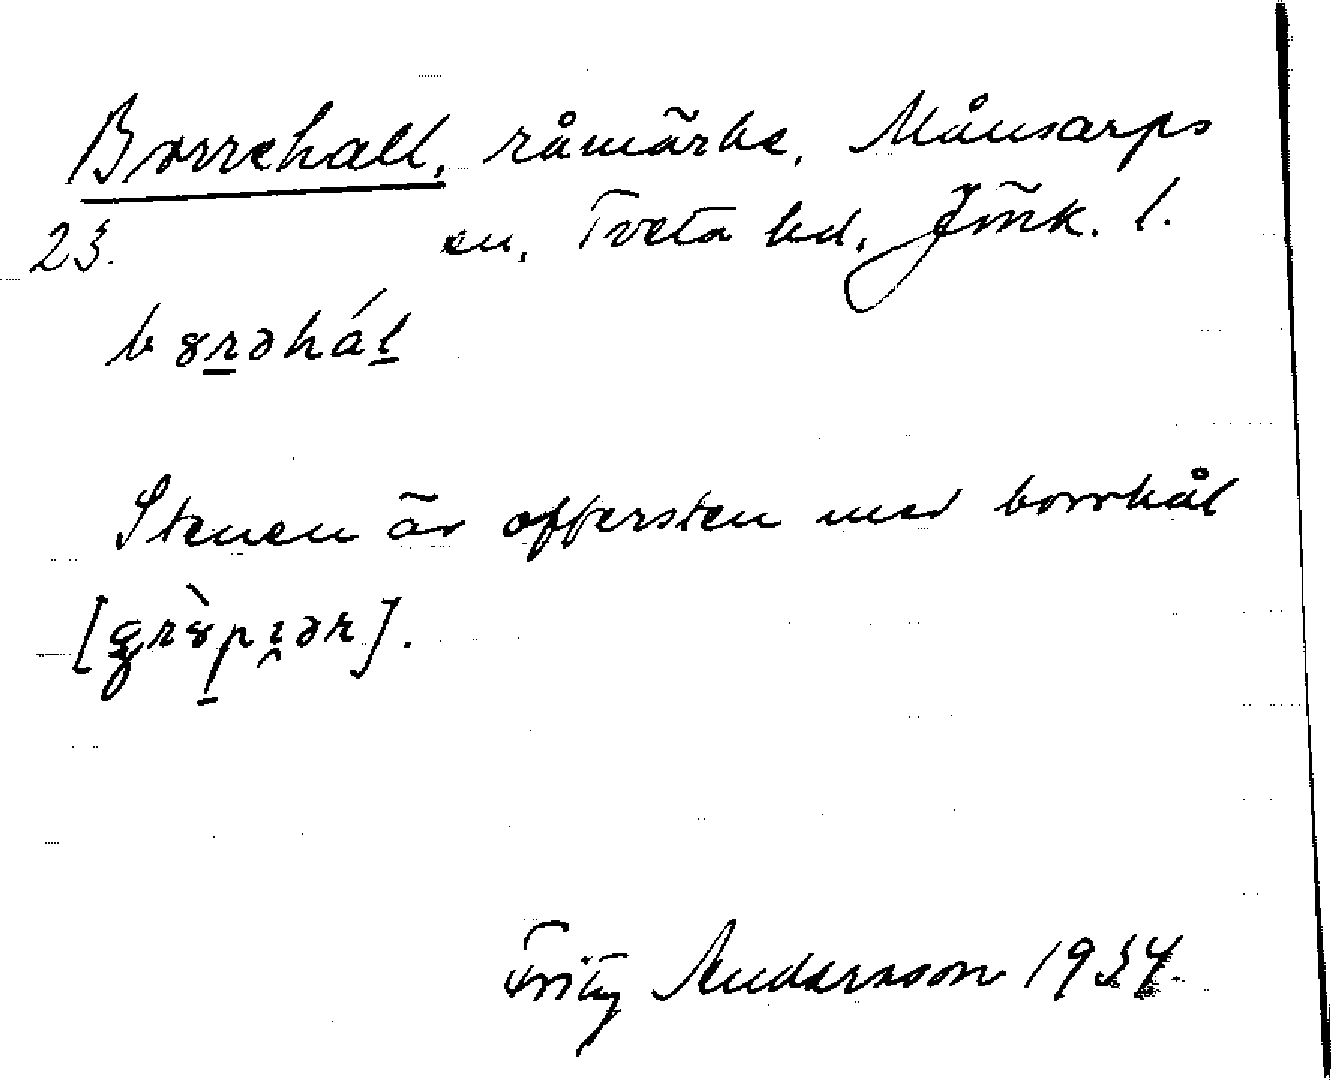 Borrehall, råmärke, Månsarps
23. sn, Tveta hd, Jönk. l.
bȣrəhál
Stenen är offersten med borrhål
[grȣ̀pɩər].
Fritz Andersson 1934.